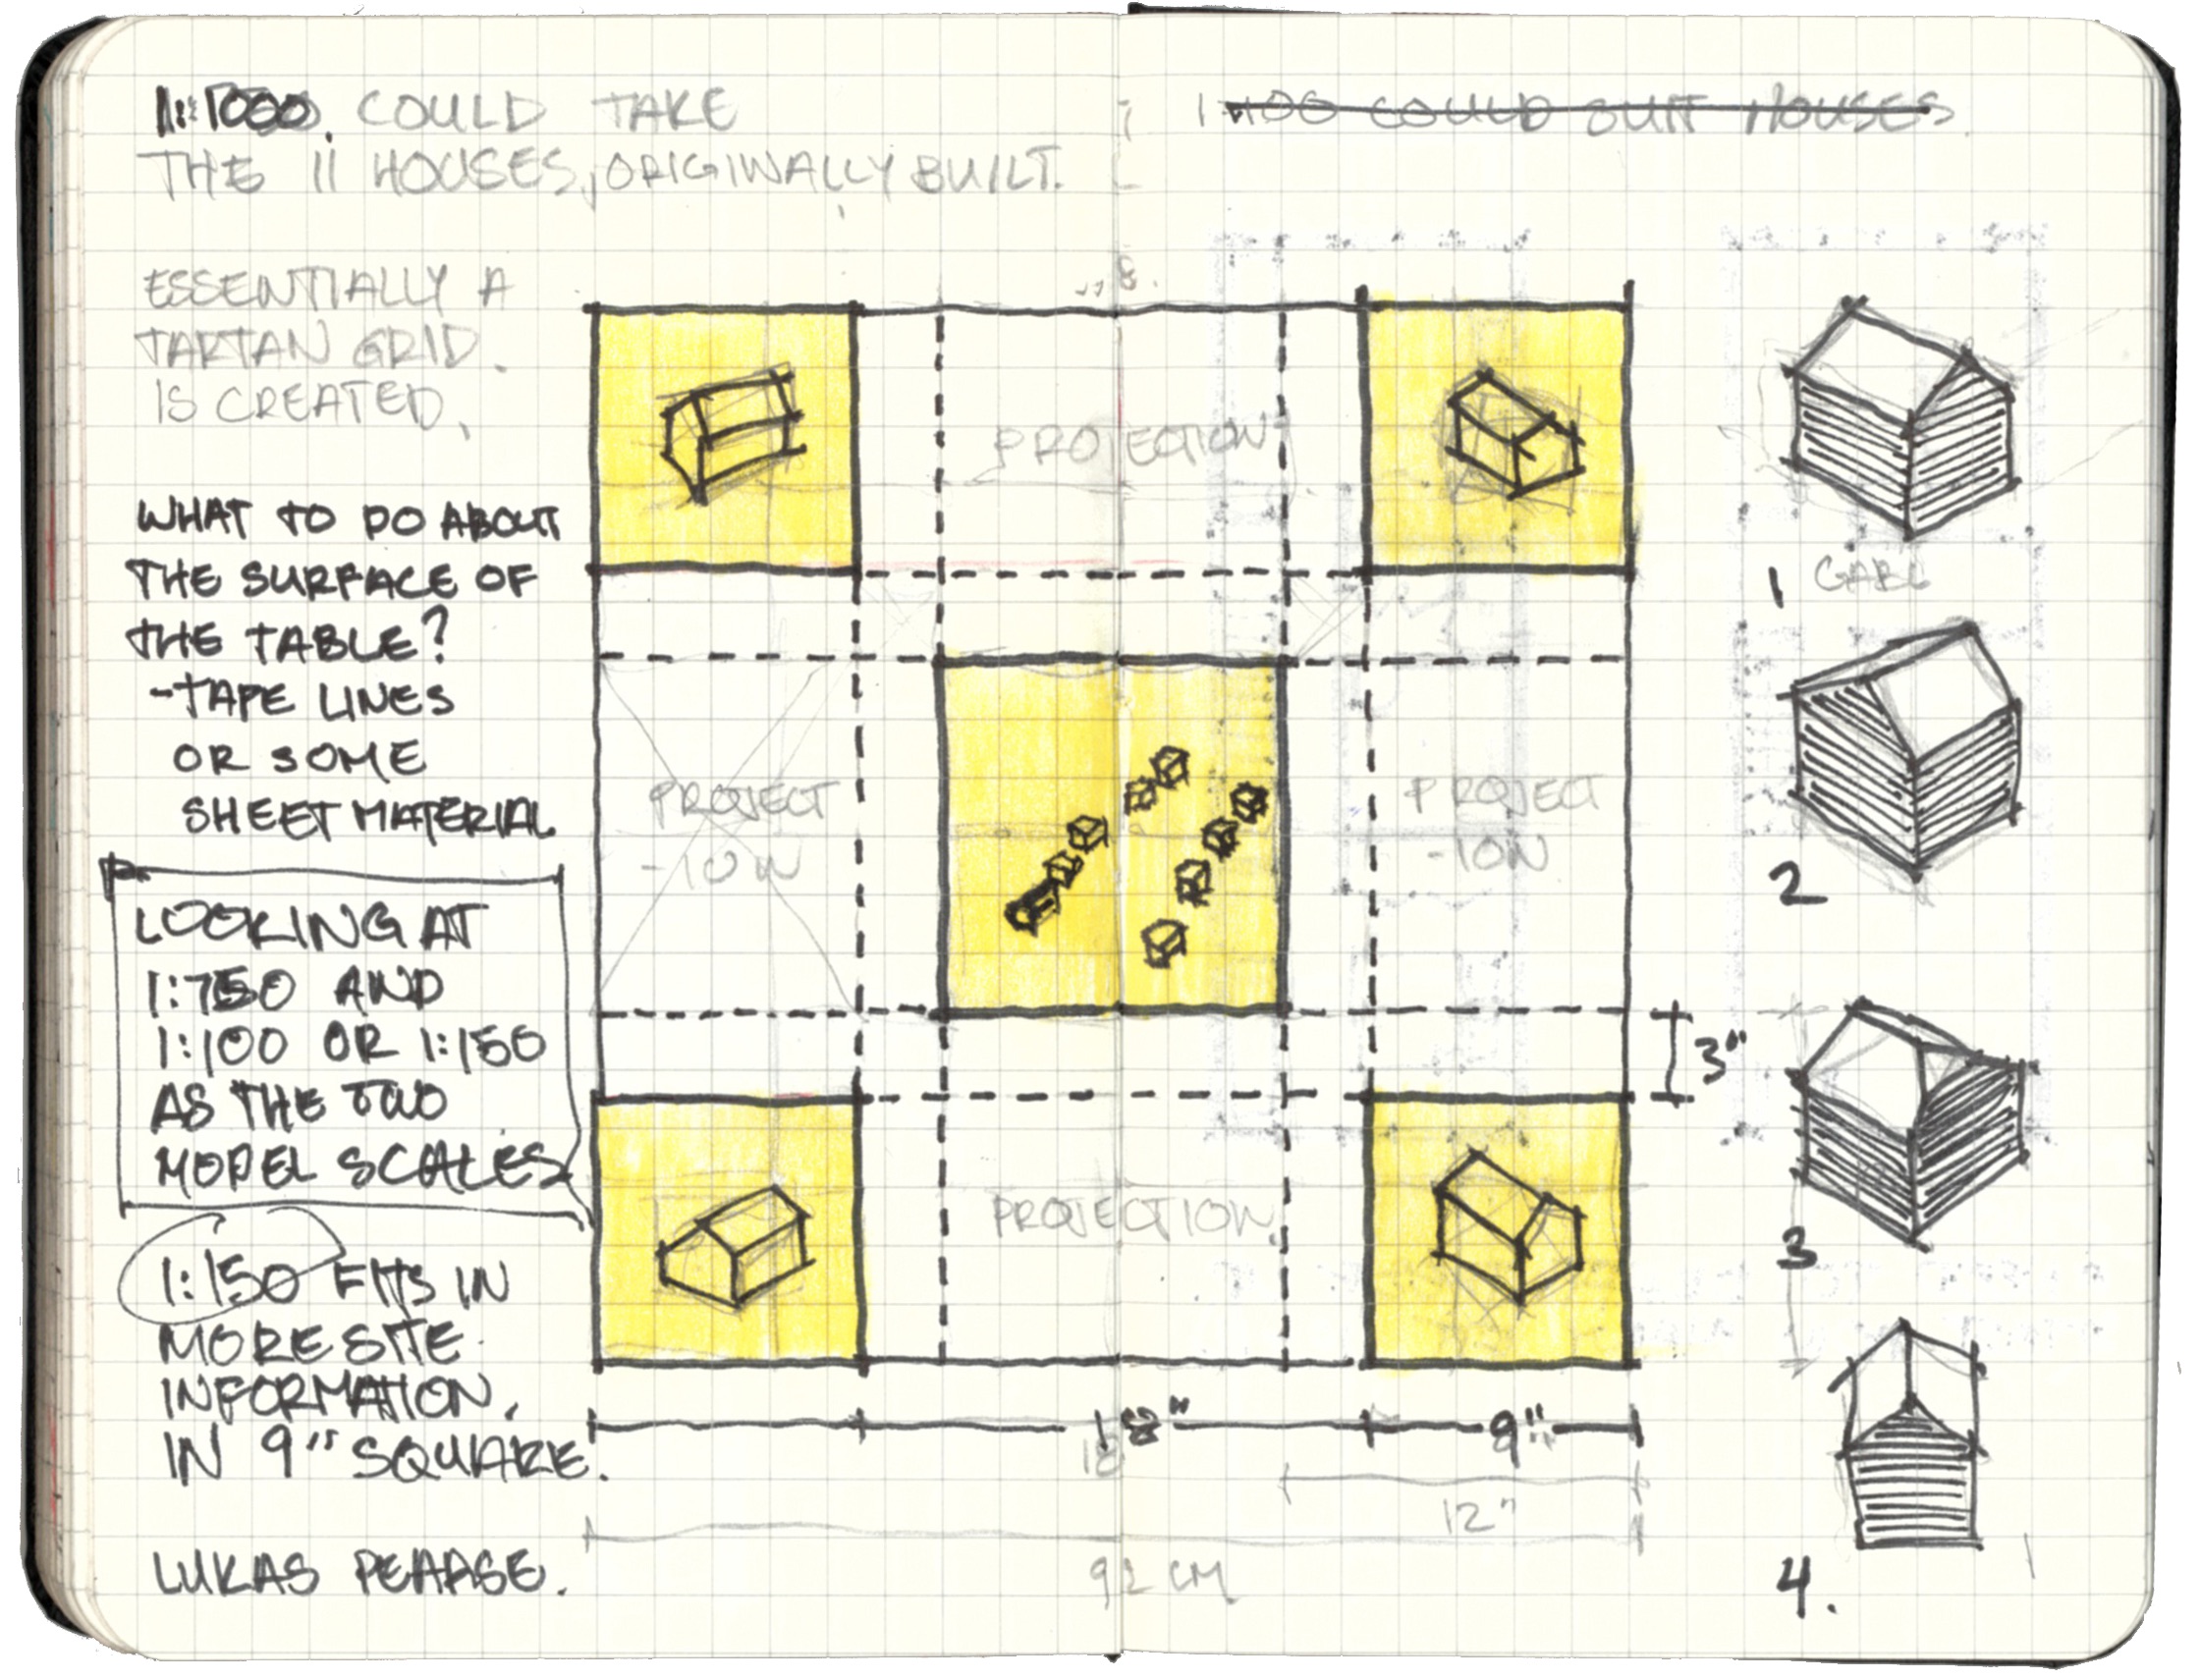 1:1000. COULD TAKE
THE 11 HOUSES, ORIGINALLY BUILT.
1:100 COULD SUIT HOUSES.
ESSENTIALLY A
TARTAN GRID.
IS CREATED.
WHAT TO DO ABOUT
THE SURFACE OF
THE TABLE?
-TAPE LINES
OR SOME
SHEET MATERIAL.
LOOKING AT
1:750 AND
1:100 OR 1:150
AS THE TWO
MODEL SCALES
1:150 FITS IN
MORE SITE
INFORMATION.
IN 9" SQUARE.
LUKAS PEARSE.
PROJECTION
PROJECT
-ION
PROJECT
-ION
PROJECTION
3"
18"
9"
18
12"
92 CM
1 GABL
2
3
4.